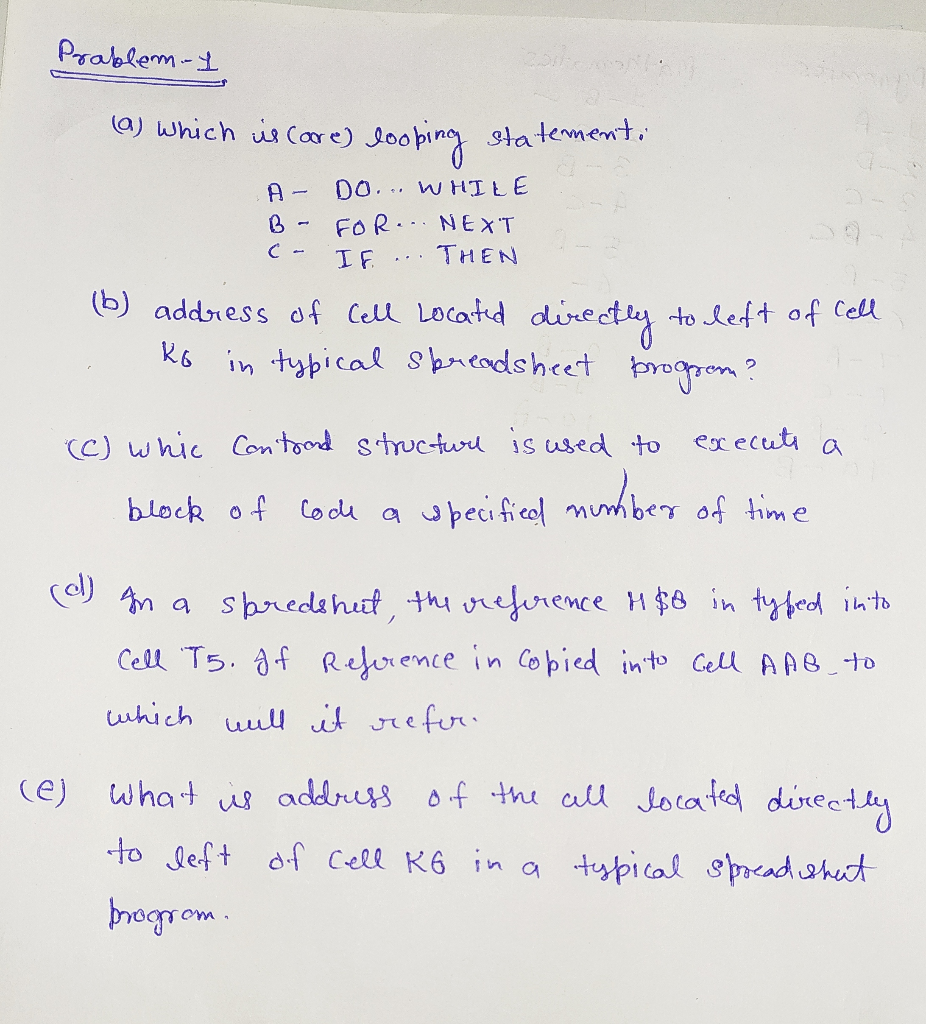 Problem-1
(a) Which is (are) looping statement.
A - DO... WHILE
B - FOR... NEXT
C - IF ... THEN
(b) address of Cell Located directly to left of Cell
K6 in typical spreadsheet program?
(C) Whic Control structure is used to execute a
block of Code a specified number of time
(d) In a spredsheet, the reference H$8 in typed into
Cell T5. If Reference in Copied into Cell AA8 to
which will it refer.
(e) What is address of the cell located directly
to left of Cell K6 in a typical spreadsheet
program.